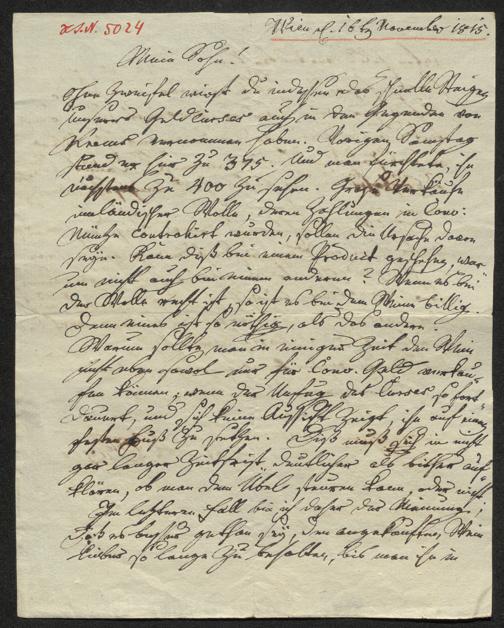 H.I.N. 5024
Wien d. 16 November 1815.
Mein Sohn!
Ohne Zweifel wirst du indessen das schnelle Steigen
unseres Geldcurses auch in den Gegenden von
Krems vernommen haben. Vorigen Samstag
stand er hier zu 375. Und man fürchtete, ihn
nächstens zu 400 zu sehen. Große Verkäufe
inländischer Wolle, deren Zahlungen in Conv:
Münze contrahirt wurden, sollen die Ursache davon
seyn. Kann diß bei einem Product geschehen, war-
um nicht auch bei einem anderen? Wenn es bei
der Wolle recht ist, so ist es bei dem Wein billig.
Denn eines ist so nöthig, als das andere.
Warum sollte man in einiger Zeit den Wein
nicht eben sowol nur für Conv. Geld verkau-
fen können, wenn der Unfug des Curses so fort-
dauert, und sich keine Aussicht zeigt, ihn auf einen
festen Fuß zu setzen. Diß muß sich in nicht
gar langer Zeitfrist deutlicher als bisher auf-
klären, ob man dem Übel steuern kann, oder nicht.
Im letzteren Fall bin ich daher der Meinung,
daß es besser gethan sey, den angekauften Wein
lieber so lange zu behalten, bis man ihn in